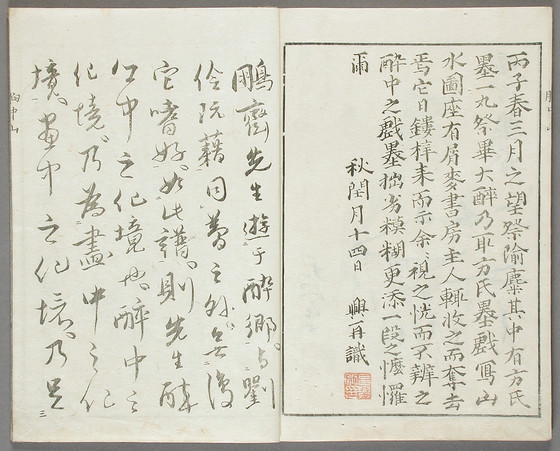 丙子春三月之望祭隃麋其中有方氏
墨一丸祭畢大醉乃取方氏墨戲寫山
水圖座有屑麥書房主人輙收之而奪去
焉它日鏤梓来而示余〻視之恍而不辨之
醉中之戲墨拙劣糢糊更添一段之懡㦬
爾
秋閏月十四日 興再識
鵬齋先生遊于酔郷与劉
伶阮藉同夢之外無復
它嗜好如此譜則先生酔
中之化境也酔中之
化境乃為畫中之化
境畫中之化境乃足
胸中山
三